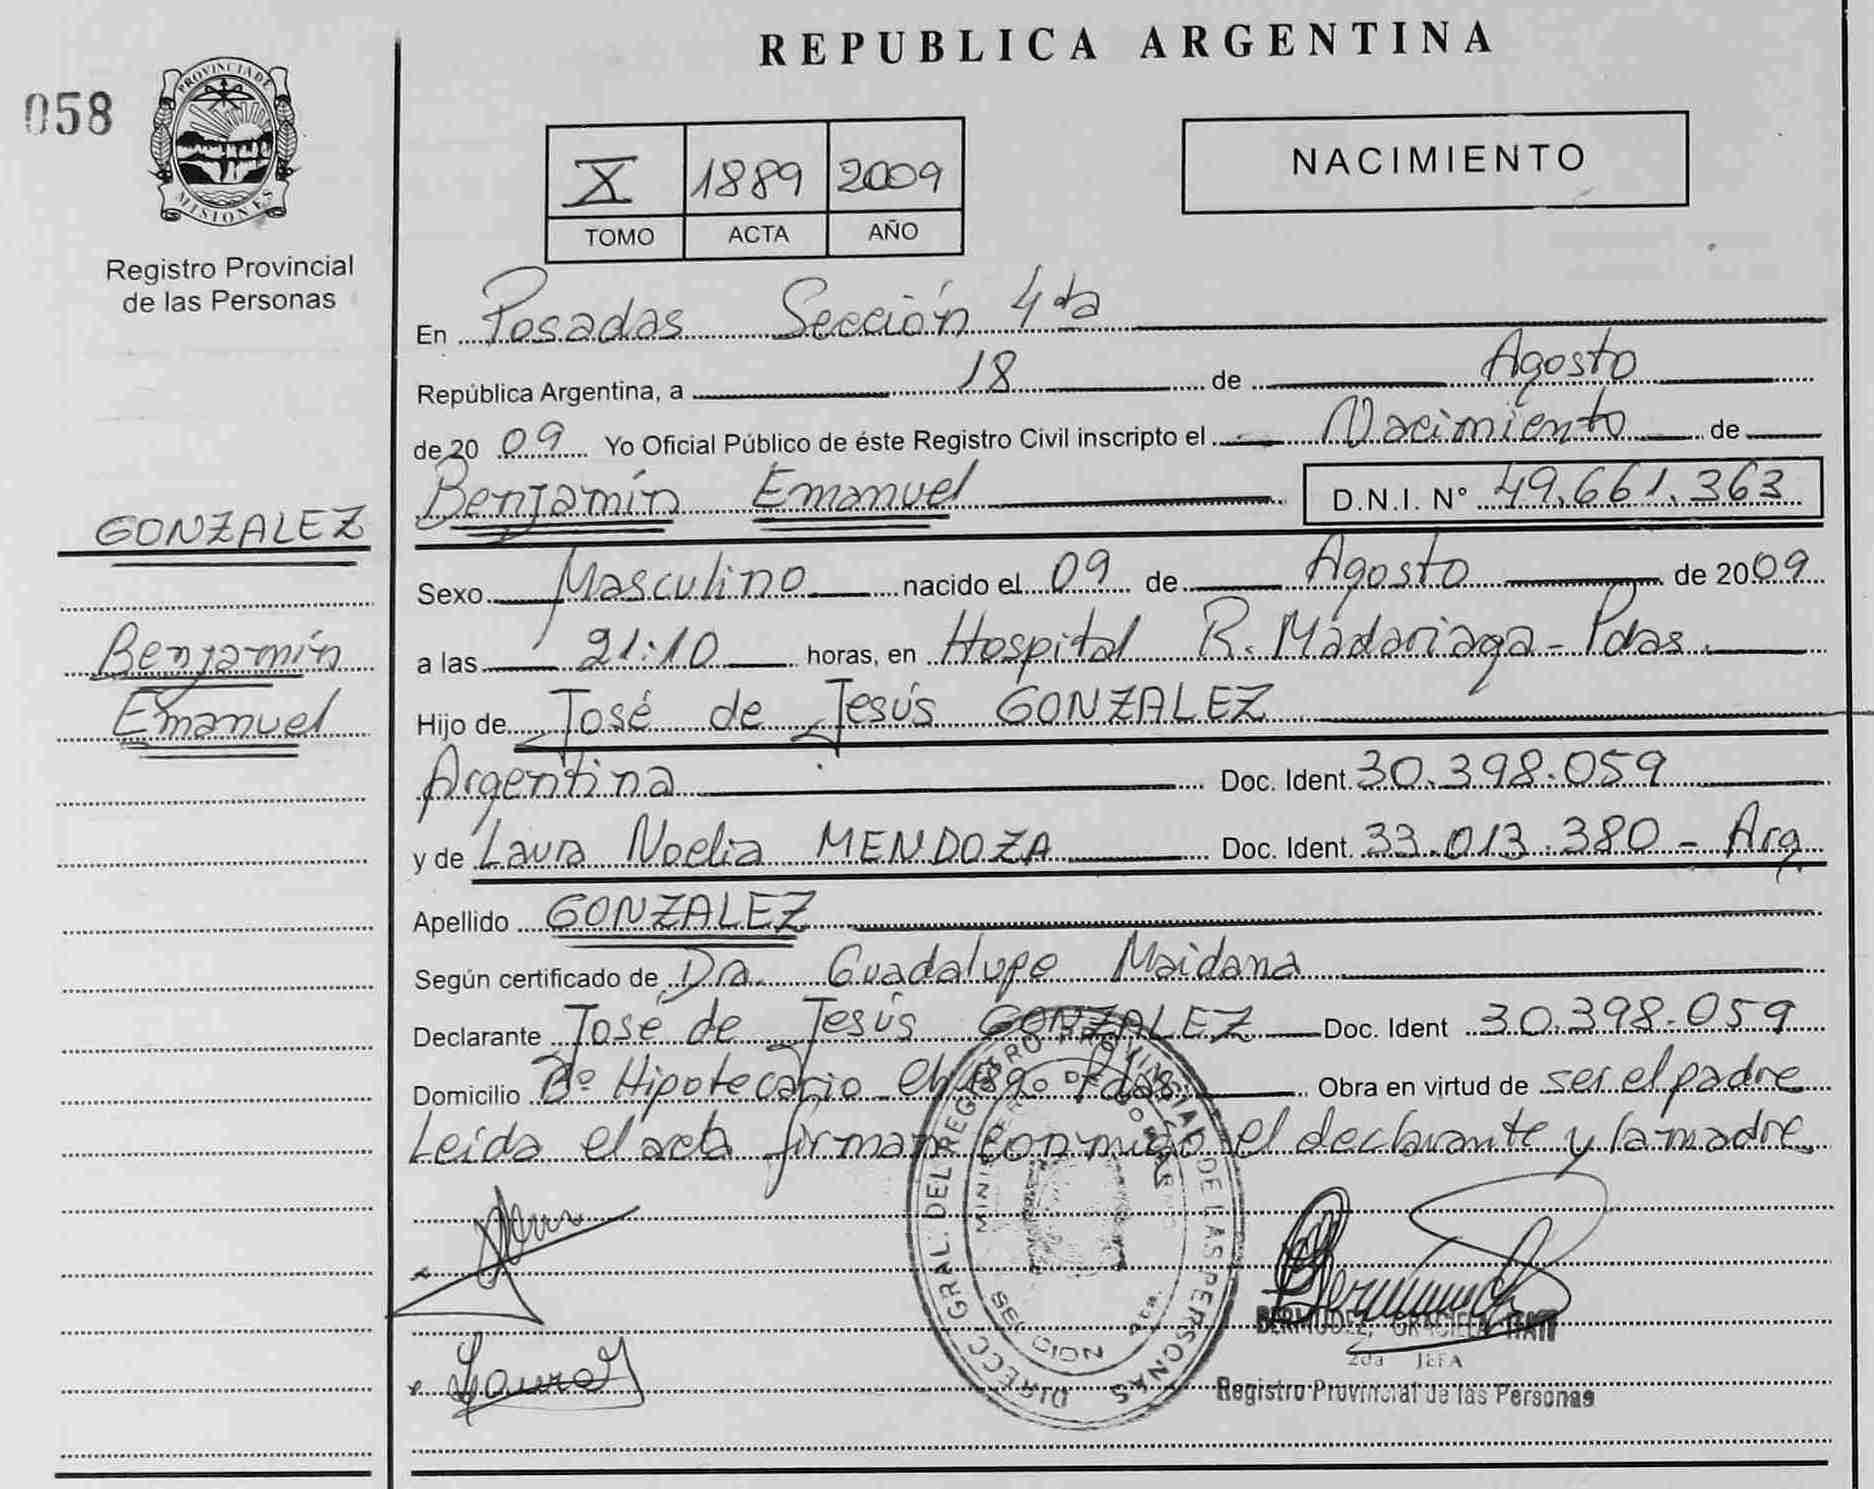 REPUBLICA ARGENTINA
058
PROVINCIA DE
MISIONES
Registro Provincial
de las Personas
X 1889 2009
TOMO ACTA AÑO
NACIMIENTO
En Posadas Sección 4ta
República Argentina, a 18 de Agosto
de 2009 Yo Oficial Público de éste Registro Civil inscripto el Nacimiento de
Benjamín Emanuel D.N.I. N° 49.661.363
GONZALEZ
Benjamín
Emanuel
Sexo Masculino nacido el 09 de Agosto de 2009
a las 21:10 horas, en Hospital R. Madariaga - Pdas.
Hijo de José de Jesús GONZALEZ
Argentina Doc. Ident. 30.398.059
y de Laura Noelia MENDOZA Doc. Ident. 33.013.380 - Arg.
Apellido GONZALEZ
Según certificado de Dra. Guadalupe Maidana
Declarante José de Jesús GONZALEZ Doc. Ident 30.398.059
Domicilio Bº Hipotecario Pdas. Obra en virtud de ser el padre
Leída el acta firman conmigo el declarante y la madre
DIRECC. GRAL. DEL REGISTRO PROVINCIAL DE LAS PERSONAS
BERMUDEZ, GRACIELA ITATI
2da JEFA
Registro Provincial de las Personas
Laura